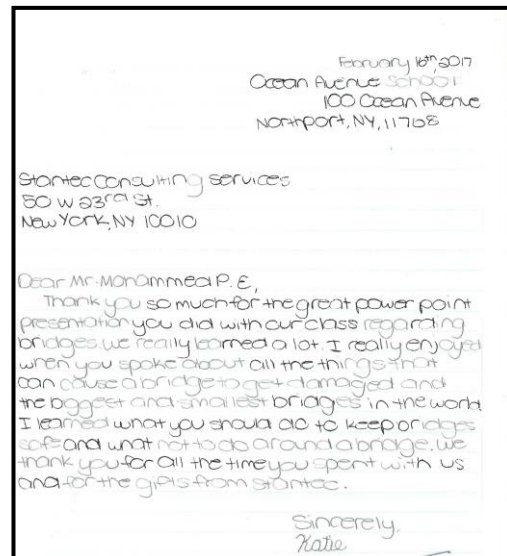 February 16th, 2017
Ocean Avenue School
100 Ocean Avenue
Northport, NY, 11768
Stantec Consulting Services
50 W 23rd St.
New York, NY 10010
Dear Mr. Mohammed P.E,
Thank you so much for the great power point
presentation you did with our class regarding
bridges we really learned a lot. I really enjoyed
when you spoke about all the things that
can cause a bridge to get damaged and
the biggest and smallest bridges in the world.
I learned what you should do to keep bridges
safe and what not to do around a bridge. We
thank you for all the time you spent with us
and for the gifts from stantec.
Sincerely,
Katie